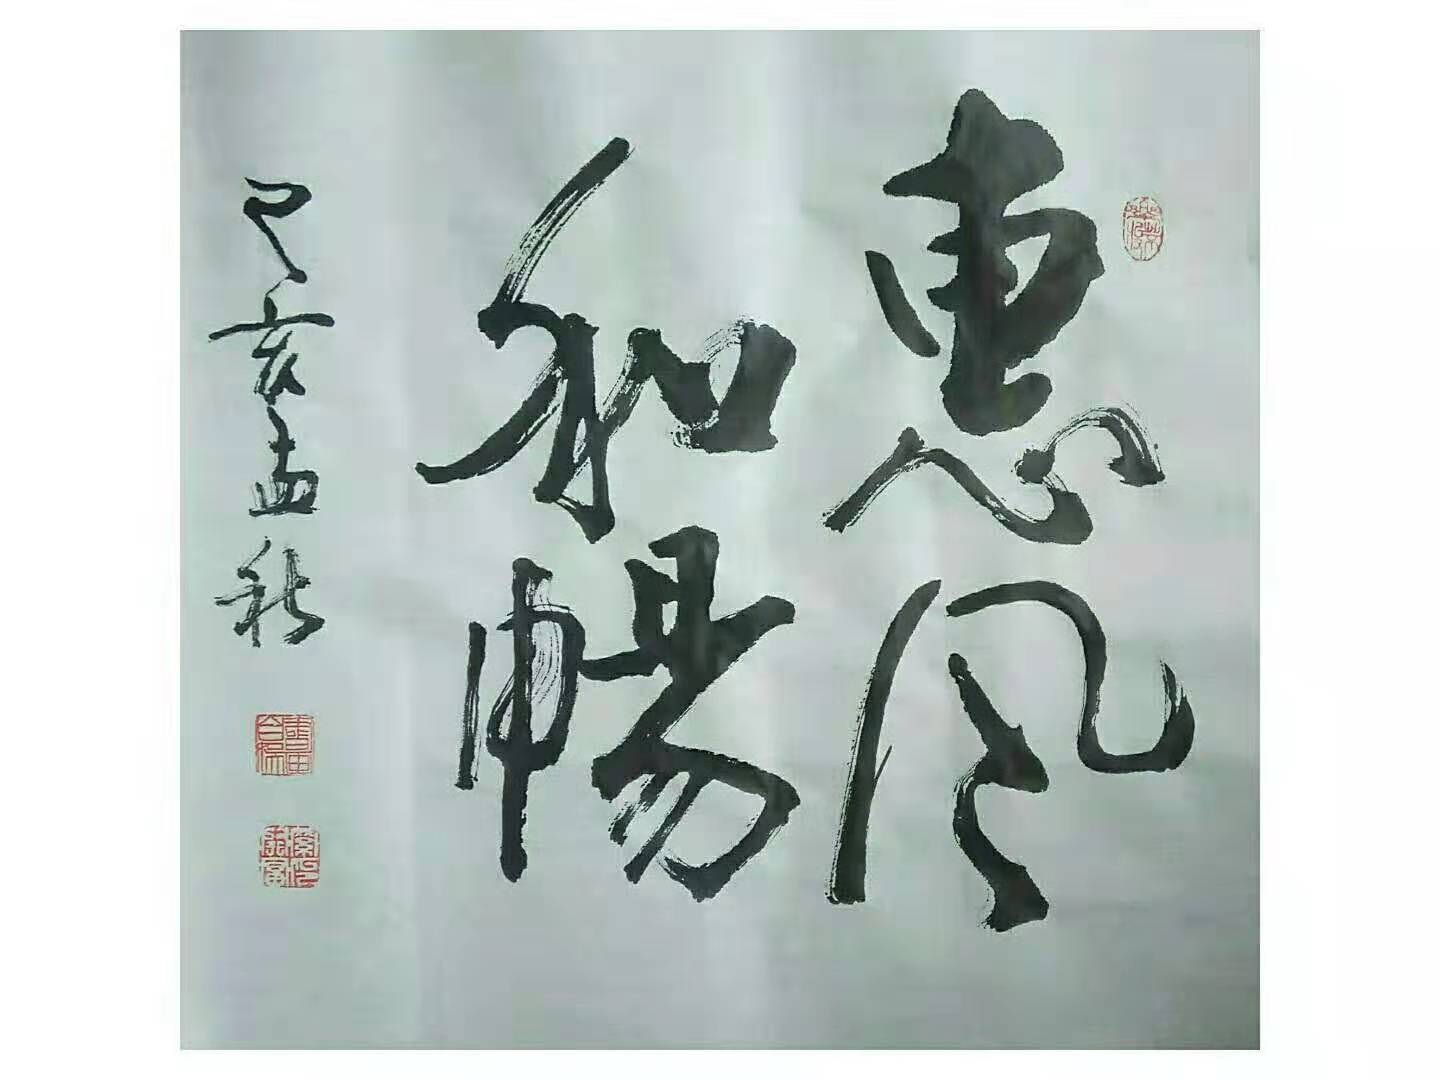 惠风
和暢
己亥孟秋